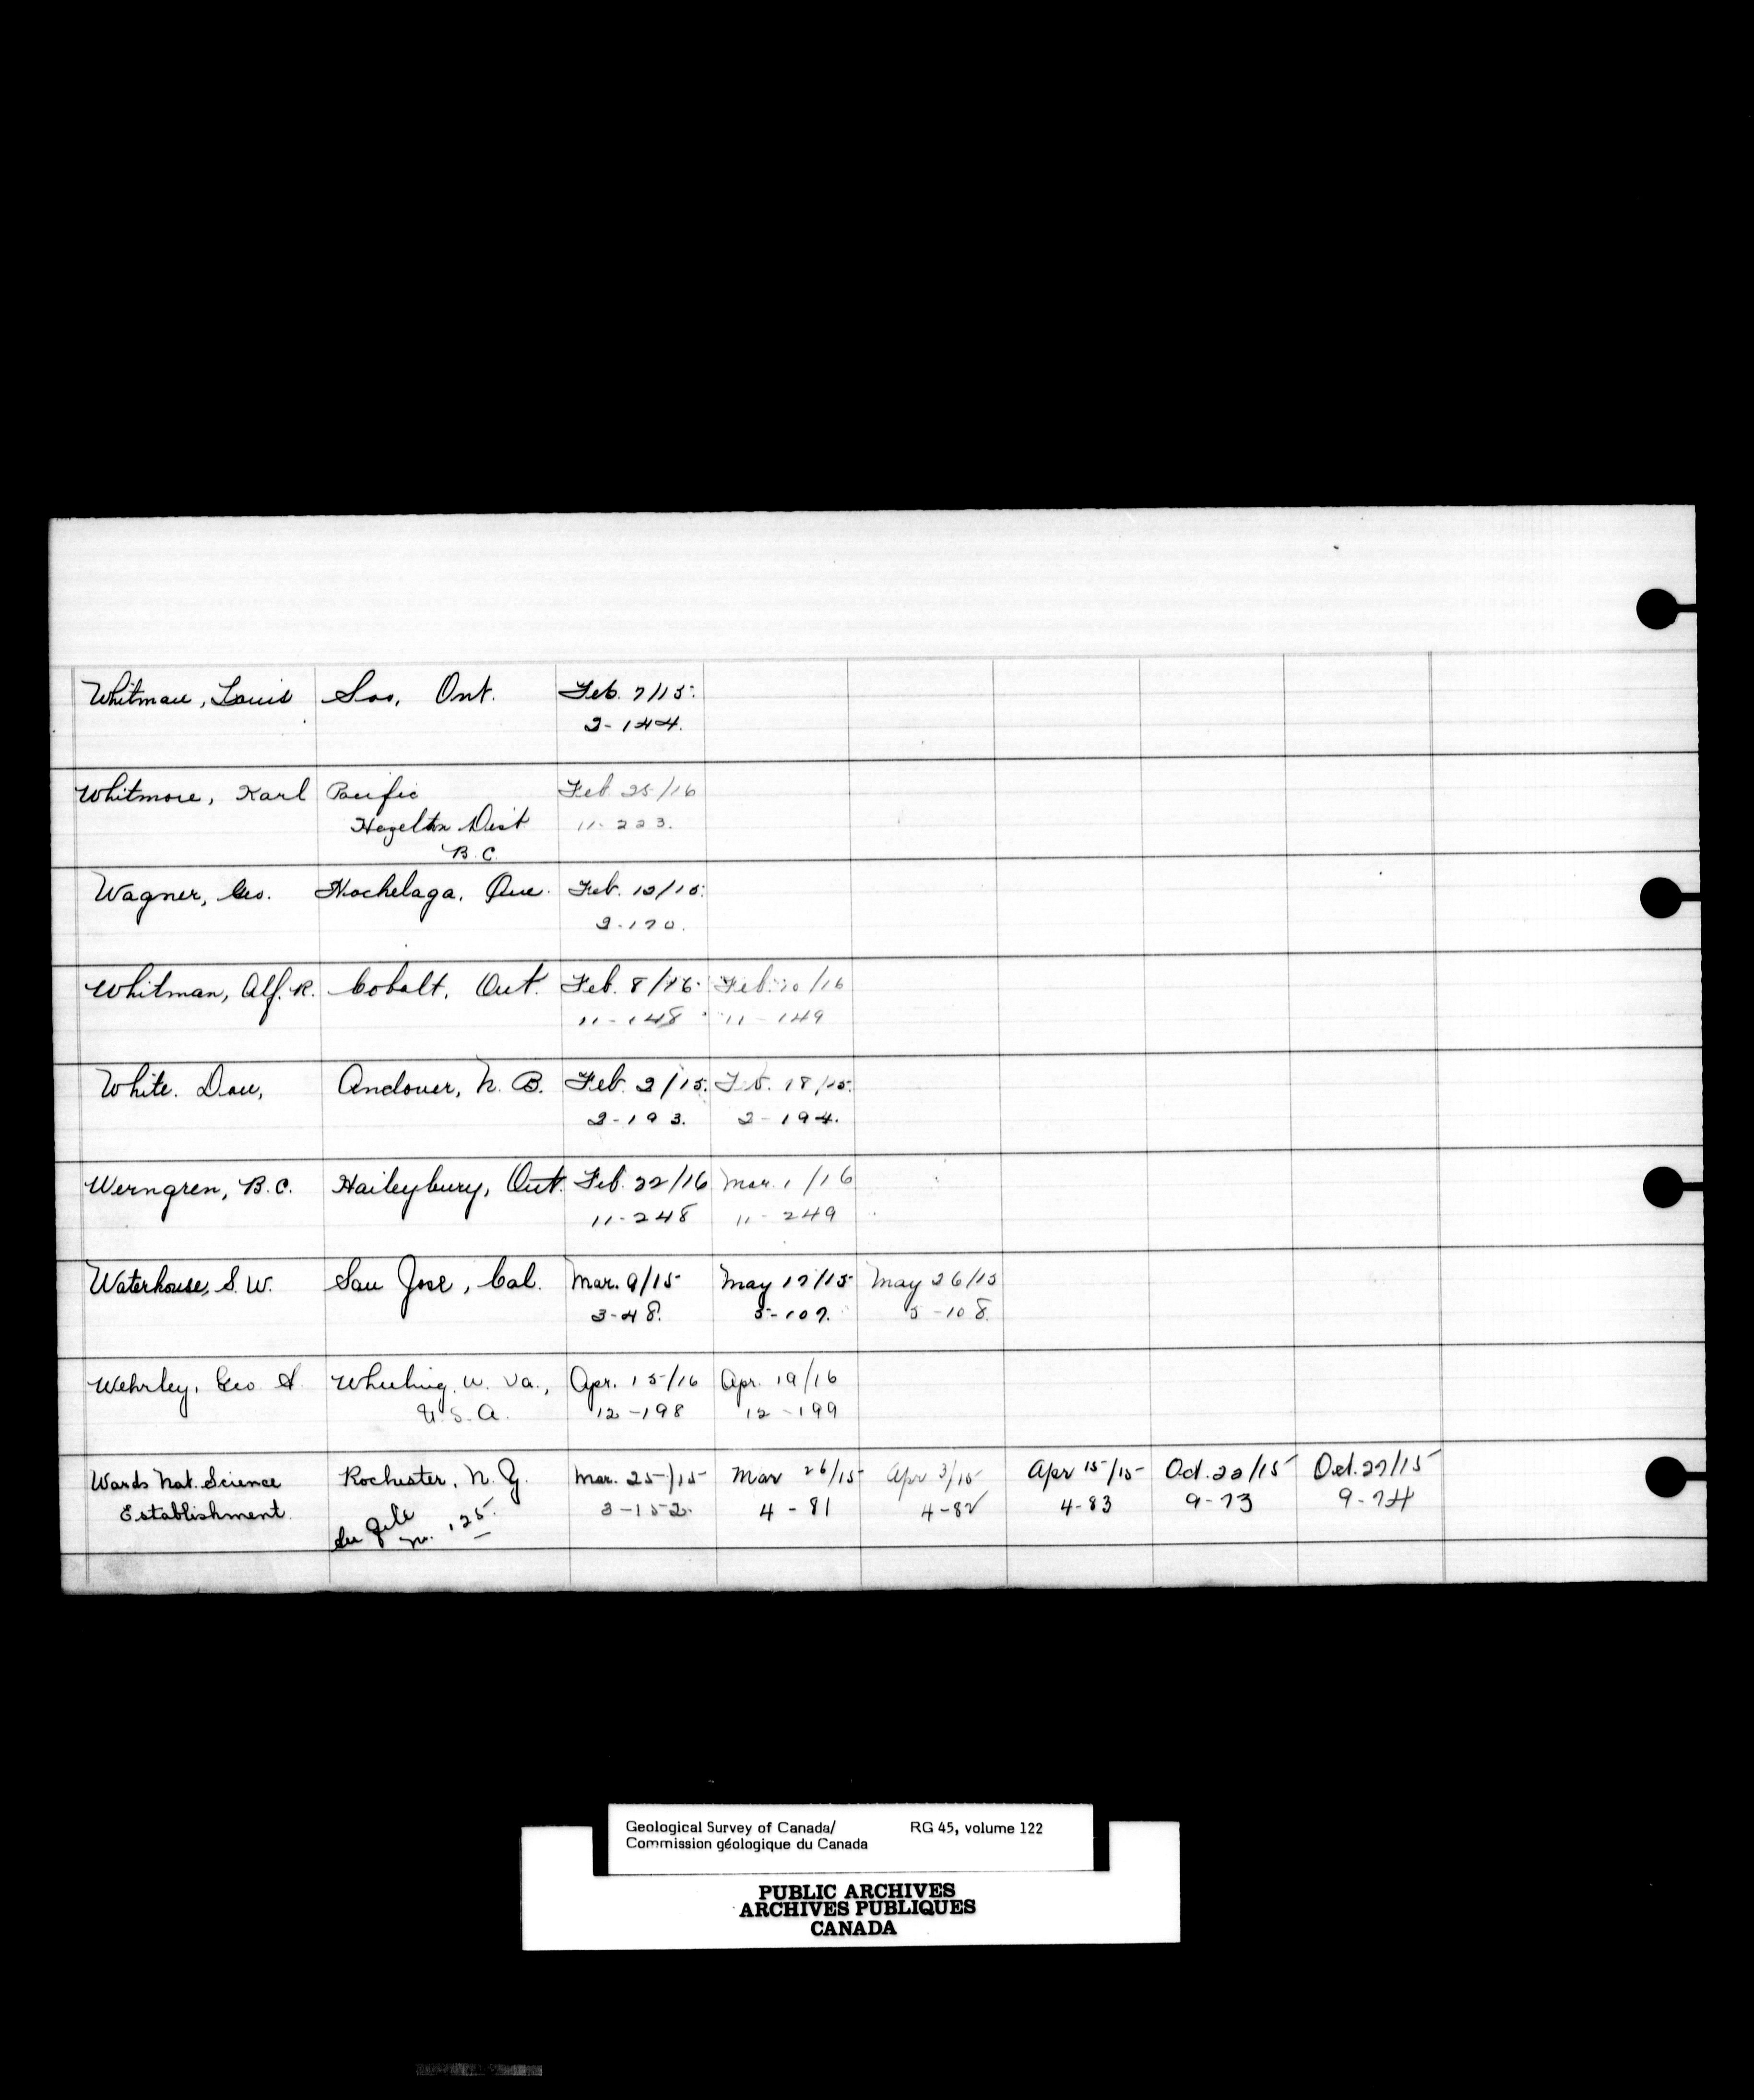 Whitman, Louis Soo, Ont. Feb. 7/15.
2-144.
Whitmore, Karl Pacific Feb. 25/16
Hazelton Dist 11-223.
B.C.
Wagner, Geo. Hochelaga, Que. Feb. 12/15.
2-170.
Whitman, Alf. R. Cobalt, Ont. Feb. 8/16 Feb. 10/16
11-148 11-149
White. Dan, Andover, N. B. Feb. 2/15. Feb. 18/15.
2-193. 2-194.
Werngren, B.C. Haileybury, Ont. Feb. 22/16 Mar. 1/16
11-248 11-249
Waterhouse, S. W. San Jose, Cal. Mar. 9/15 May 17/15 May 26/15
3-48. 5-107. 5-108.
Wehrley, Geo A. Wheeling. W. Va., Apr. 15/16 Apr. 19/16
U.S.A. 12-198 12-199
Wards Nat. Science Rochester, N. Y. Mar. 25/15 Mar 26/15 Apr 3/15 Apr 15/15 Oct. 22/15 Oct. 27/15
Establishment. 3-152. 4-81 4-82 4-83 9-73 9-74
See file no. 125.
Geological Survey of Canada/ RG 45, volume 122
Commission géologique du Canada
PUBLIC ARCHIVES
ARCHIVES PUBLIQUES
CANADA